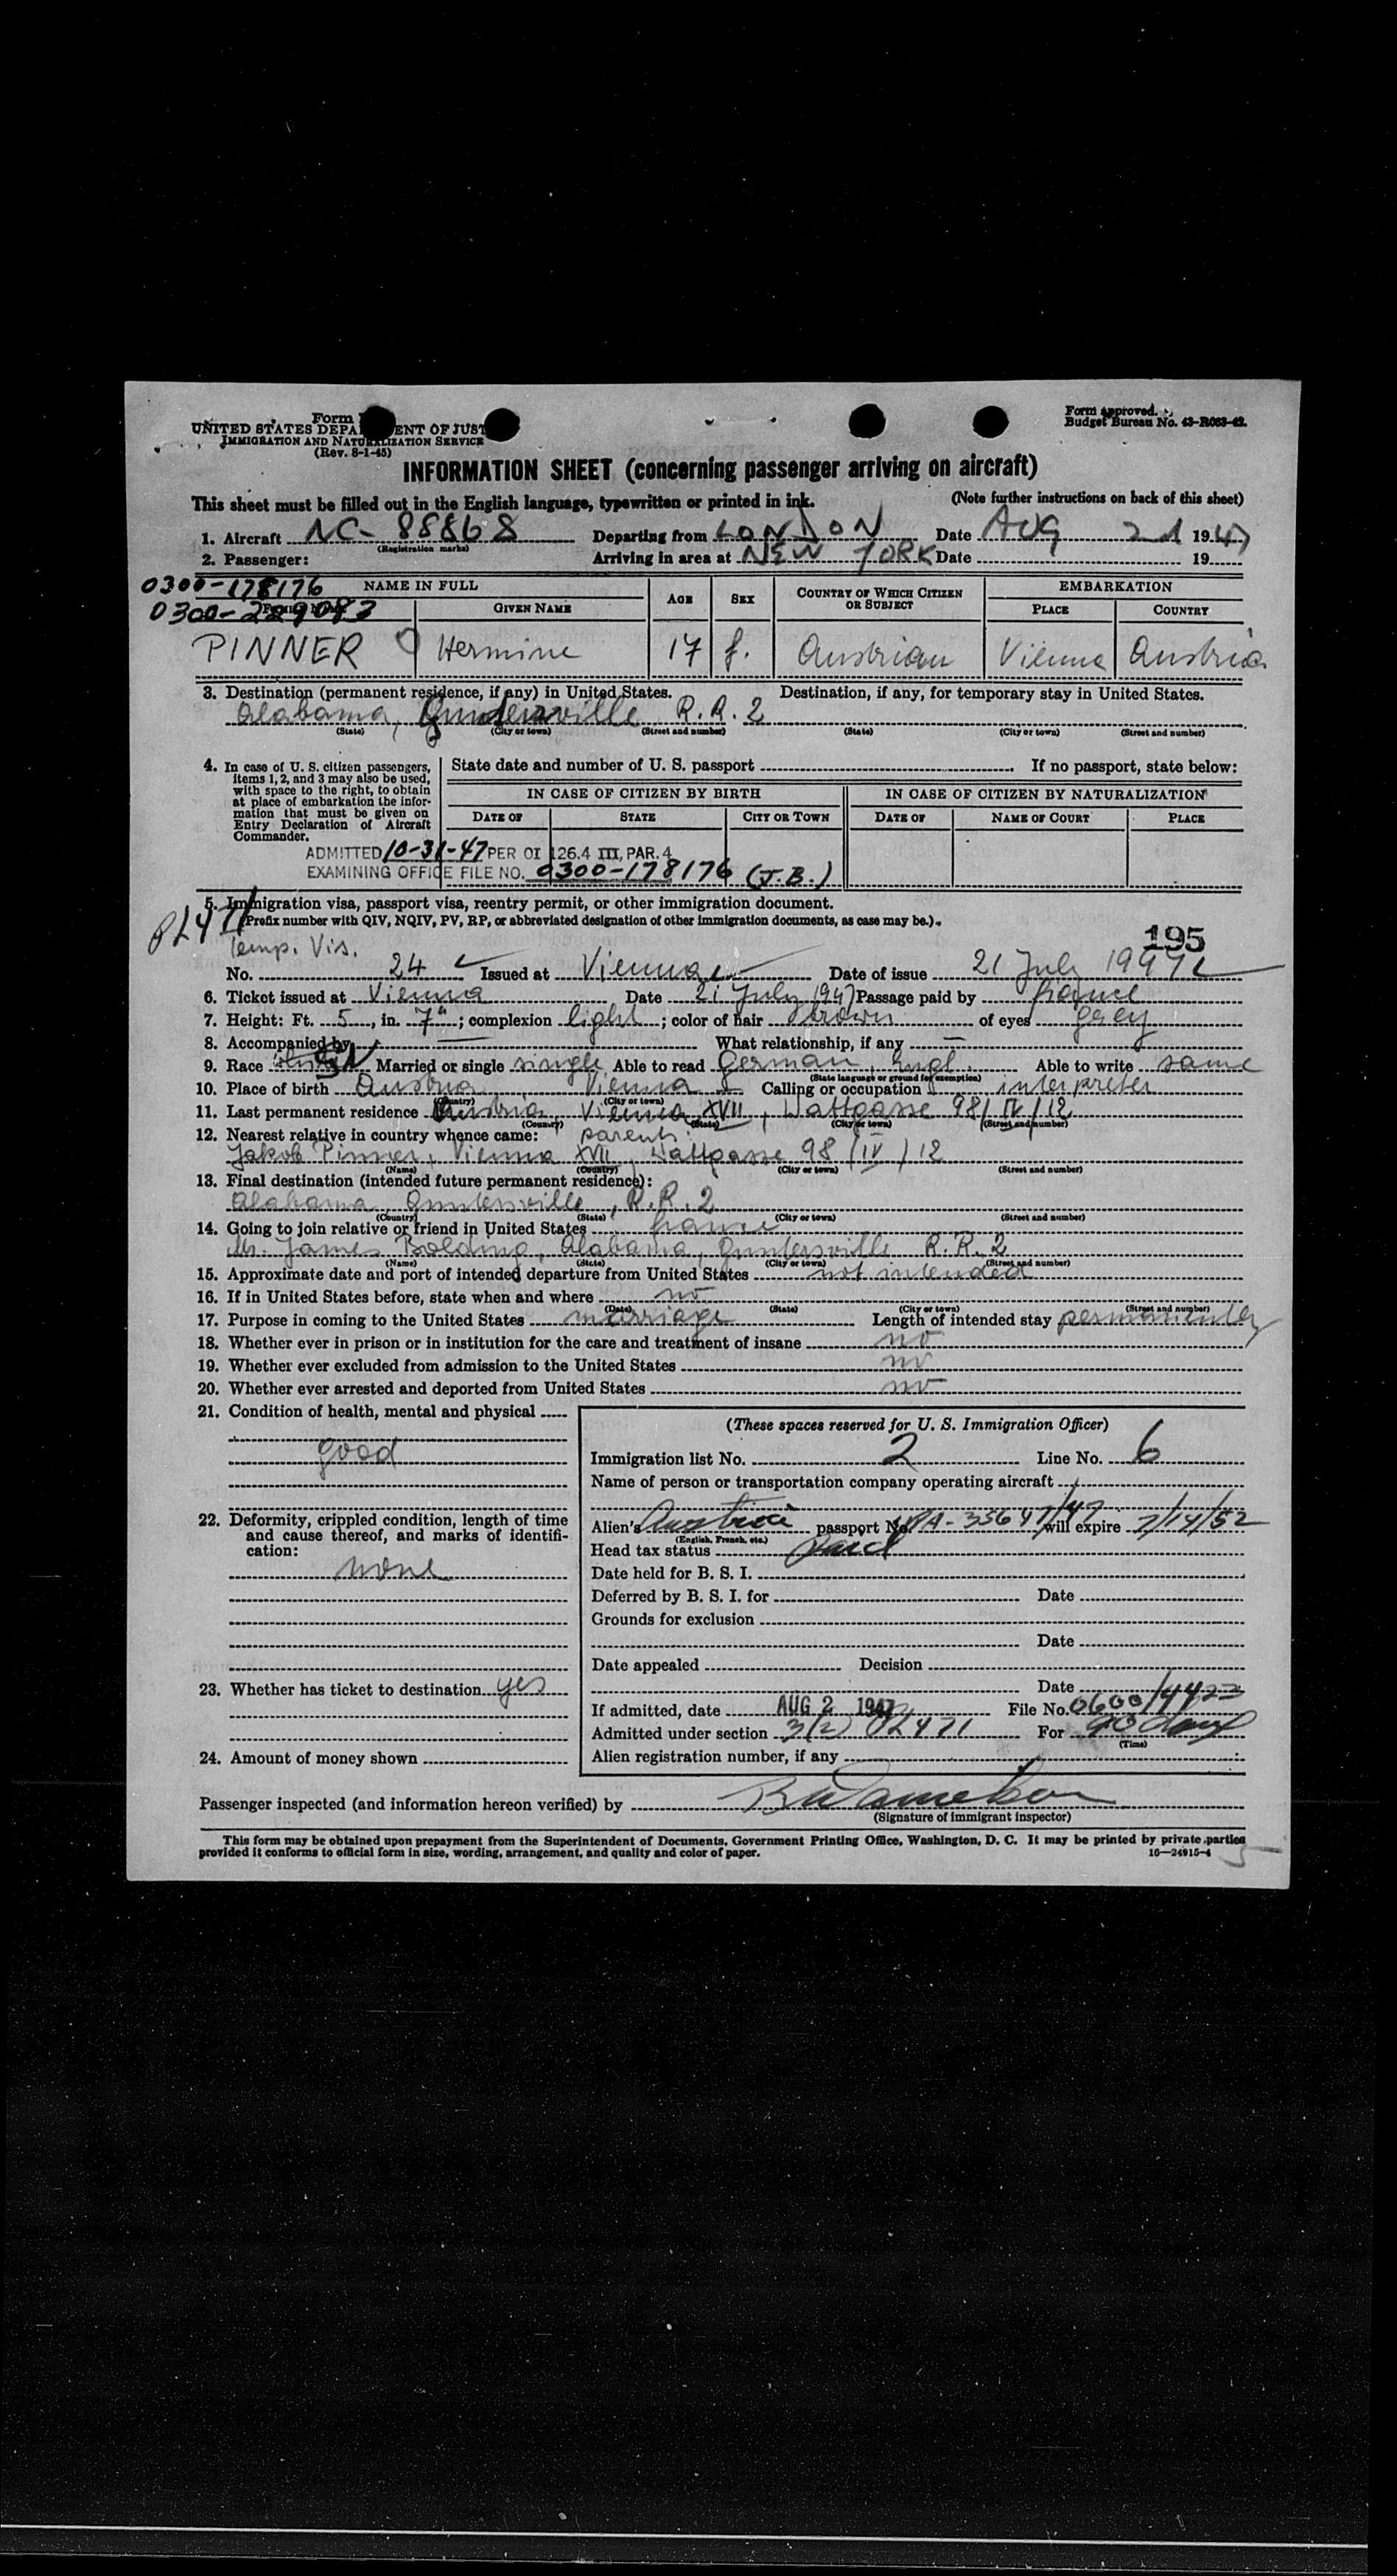 Form
UNITED STATES DEPA ENT OF JUST
IMMIGRATION AND NATURALIZATION SERVICE
(Rev. 8-1-45)
Form approved.
Budget Bureau No. 43-R063-42.
INFORMATION SHEET (concerning passenger arriving on aircraft)
This sheet must be filled out in the English language, typewritten or printed in ink. (Note further instructions on back of this sheet)
1. Aircraft NC-88868 Departing from LONDON Date AUG 2d 1947
(Registration marks)
2. Passenger: Arriving in area at NEW YORK Date 19
0300-178176 NAME IN FULL AGE SEX COUNTRY OF WHICH CITIZEN OR SUBJECT EMBARKATION
0300-229083 GIVEN NAME PLACE COUNTRY
PINNER Hermine 17 f. Austrian Vienna Austria
3. Destination (permanent residence, if any) in United States. Destination, if any, for temporary stay in United States.
Alabama, Guntersville R.R.2
(State) (City or town) (Street and number) (State) (City or town) (Street and number)
4. In case of U. S. citizen passengers, items 1, 2, and 3 may also be used, with space to the right, to obtain at place of embarkation the information that must be given on Entry Declaration of Aircraft Commander.
State date and number of U. S. passport If no passport, state below:
IN CASE OF CITIZEN BY BIRTH IN CASE OF CITIZEN BY NATURALIZATION
DATE OF STATE CITY OR TOWN DATE OF NAME OF COURT PLACE
ADMITTED 10-31-47 PER OI 126.4 III, PAR. 4
EXAMINING OFFICE FILE NO. 0300-178176 (J.B.)
5. Immigration visa, passport visa, reentry permit, or other immigration document.
(Prefix number with QIV, NQIV, PV, RP, or abbreviated designation of other immigration documents, as case may be.)
PL471
195
Temp. Vis.
No. 24 Issued at Vienna Date of issue 21 July 1947
6. Ticket issued at Vienna Date 21 July 1947 Passage paid by fiance
7. Height: Ft. 5, in. 7"; complexion light; color of hair brown of eyes grey
8. Accompanied by — What relationship, if any —
9. Race Married or single single Able to read German, Engl. Able to write same
(State language or ground for exemption)
10. Place of birth Austria Vienna Calling or occupation interpreter
(Country) (City or town)
11. Last permanent residence Austria, Vienna XVII, Wattgasse 98/IV/12
(Country) (State) (City or town) (Street and number)
12. Nearest relative in country whence came: parents:
Jakob Pinner, Vienna XVII, Wattgasse 98/IV/12
(Name) (Country) (City or town) (Street and number)
13. Final destination (intended future permanent residence):
Alabama Guntersville, R.R.2
(Country) (State) (City or town) (Street and number)
14. Going to join relative or friend in United States fiance
Mr. James Bolding, Alabama, Guntersville R.R.2
(Name) (State) (City or town) (Street and number)
15. Approximate date and port of intended departure from United States not intended
16. If in United States before, state when and where no
(Date) (State) (City or town) (Street and number)
17. Purpose in coming to the United States marriage Length of intended stay permanently
18. Whether ever in prison or in institution for the care and treatment of insane no
19. Whether ever excluded from admission to the United States no
20. Whether ever arrested and deported from United States no
21. Condition of health, mental and physical
good
22. Deformity, crippled condition, length of time and cause thereof, and marks of identification:
none
23. Whether has ticket to destination yes
24. Amount of money shown
(These spaces reserved for U. S. Immigration Officer)
Immigration list No. 2 Line No. 6
Name of person or transportation company operating aircraft
Alien's Austria passport No. PA-35647/47 will expire 7/14/52
(English, French, etc.)
Head tax status Paid
Date held for B. S. I.
Deferred by B. S. I. for Date
Grounds for exclusion
Date
Date appealed Decision
Date
If admitted, date AUG 2 1947 File No. 0600/4423
Admitted under section 3(2) 02471 For 90 days
(Time)
Alien registration number, if any
Passenger inspected (and information hereon verified) by
(Signature of immigrant inspector)
This form may be obtained upon prepayment from the Superintendent of Documents, Government Printing Office, Washington, D. C. It may be printed by private parties
provided it conforms to official form in size, wording, arrangement, and quality and color of paper. 16—24915-4